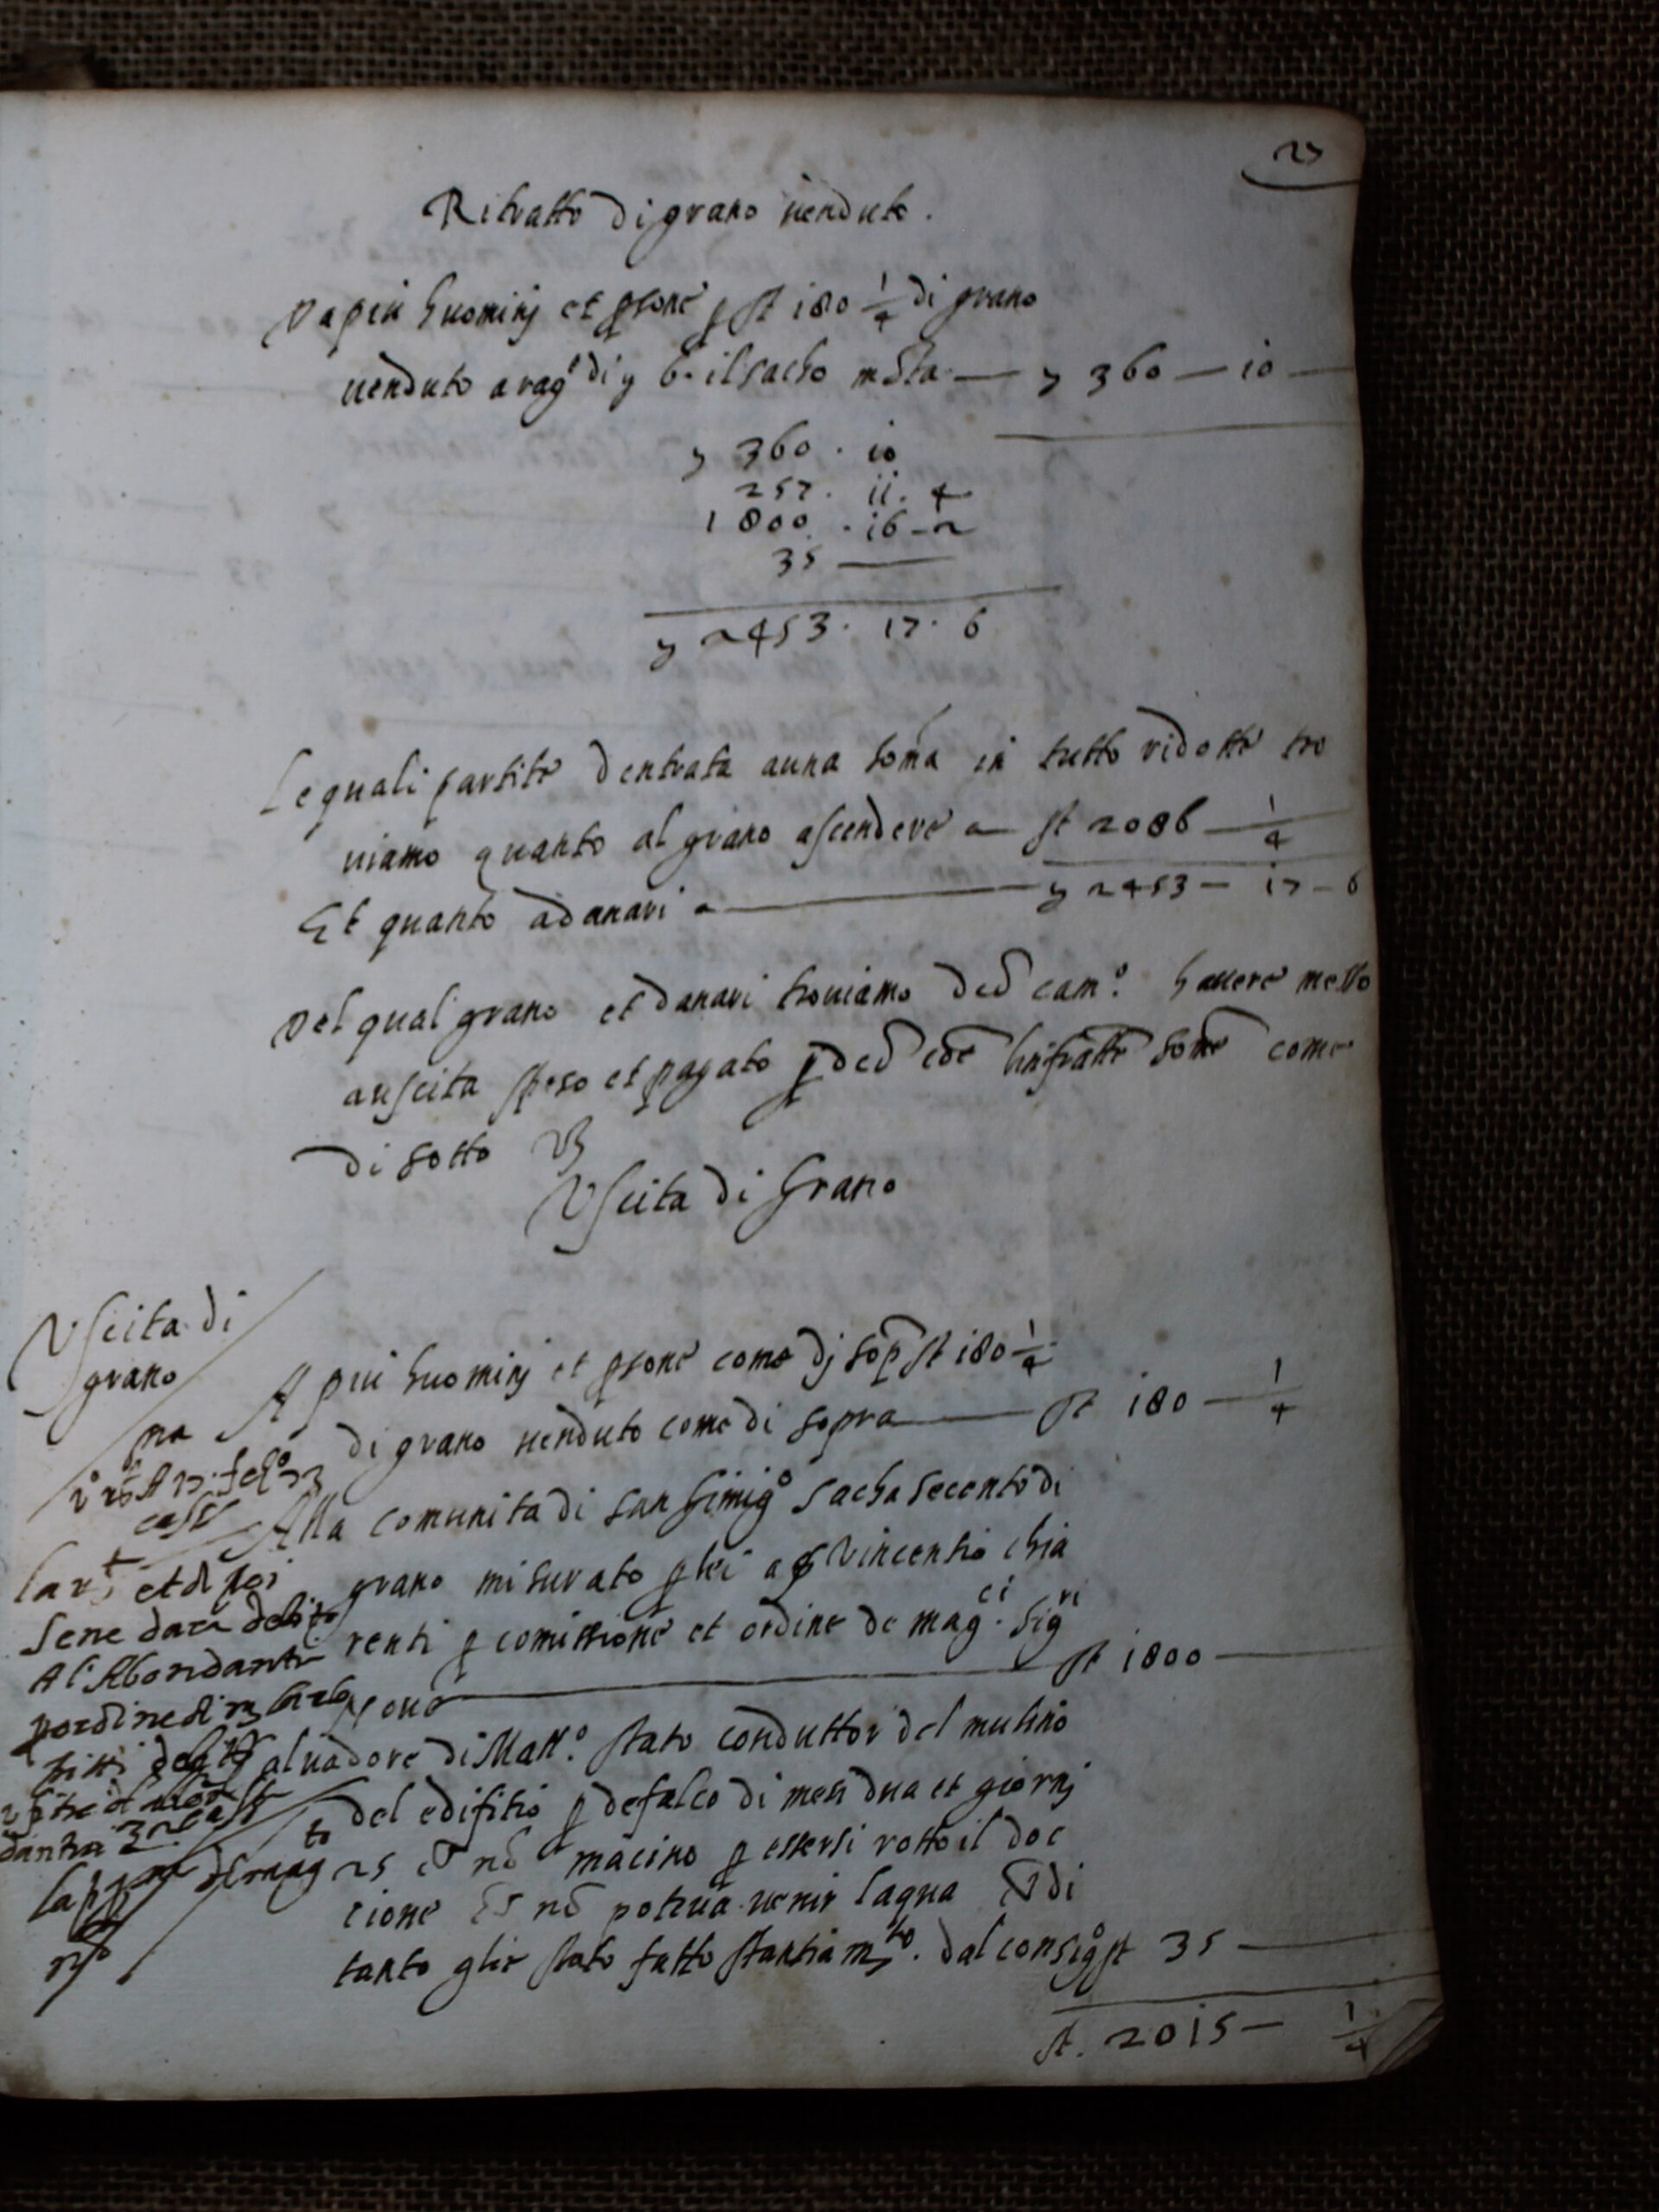 27
Ritratto di grano uenduto.
Da piu huominj et psone p st 180 1/4 di grano
uenduto a rag.e di y 6. il sacho m sta — y 360 — 10 —
y 360 . 10
257 . 11 . 4
1800 . 16 - 2
35 —
y 2453 . 17 . 6
Le quali partite dentrata auna soma in tutto ridotte tro
uiamo quanto al grano ascendere a — st 2086 — 1/4
Et quanto a danari a — y 2453 — 17 — 6
Del qual grano et danari trouiamo dco cam.o hauere messo
a uscita speso et pagato p dco come
di sotto
Uscita di Grano
Uscita di
grano
A piu huominj et psone come dj sop st 180 1/4
di grano uenduto come di sopra — st 180 — 1/4
Alla comunita di san Gimig.o sacha secento di
grano misurato p lei a Vincentio chia
renti p comissione et ordine de mag.ci sig.ri
noue — st 1800 —
Saluadore di Mass.o stato conduttor del mulino
del edifitio p defalco di mesi dua et giornj
25 nō macino p essersi rotto il doc
cione nō poteua uenir laqua di
tanto glie stato fatto stantiam.to dal consig.o st 35 —
st. 2015 — 1/4
et di poi
sene dara debito
Al Abondanti
p ordine di